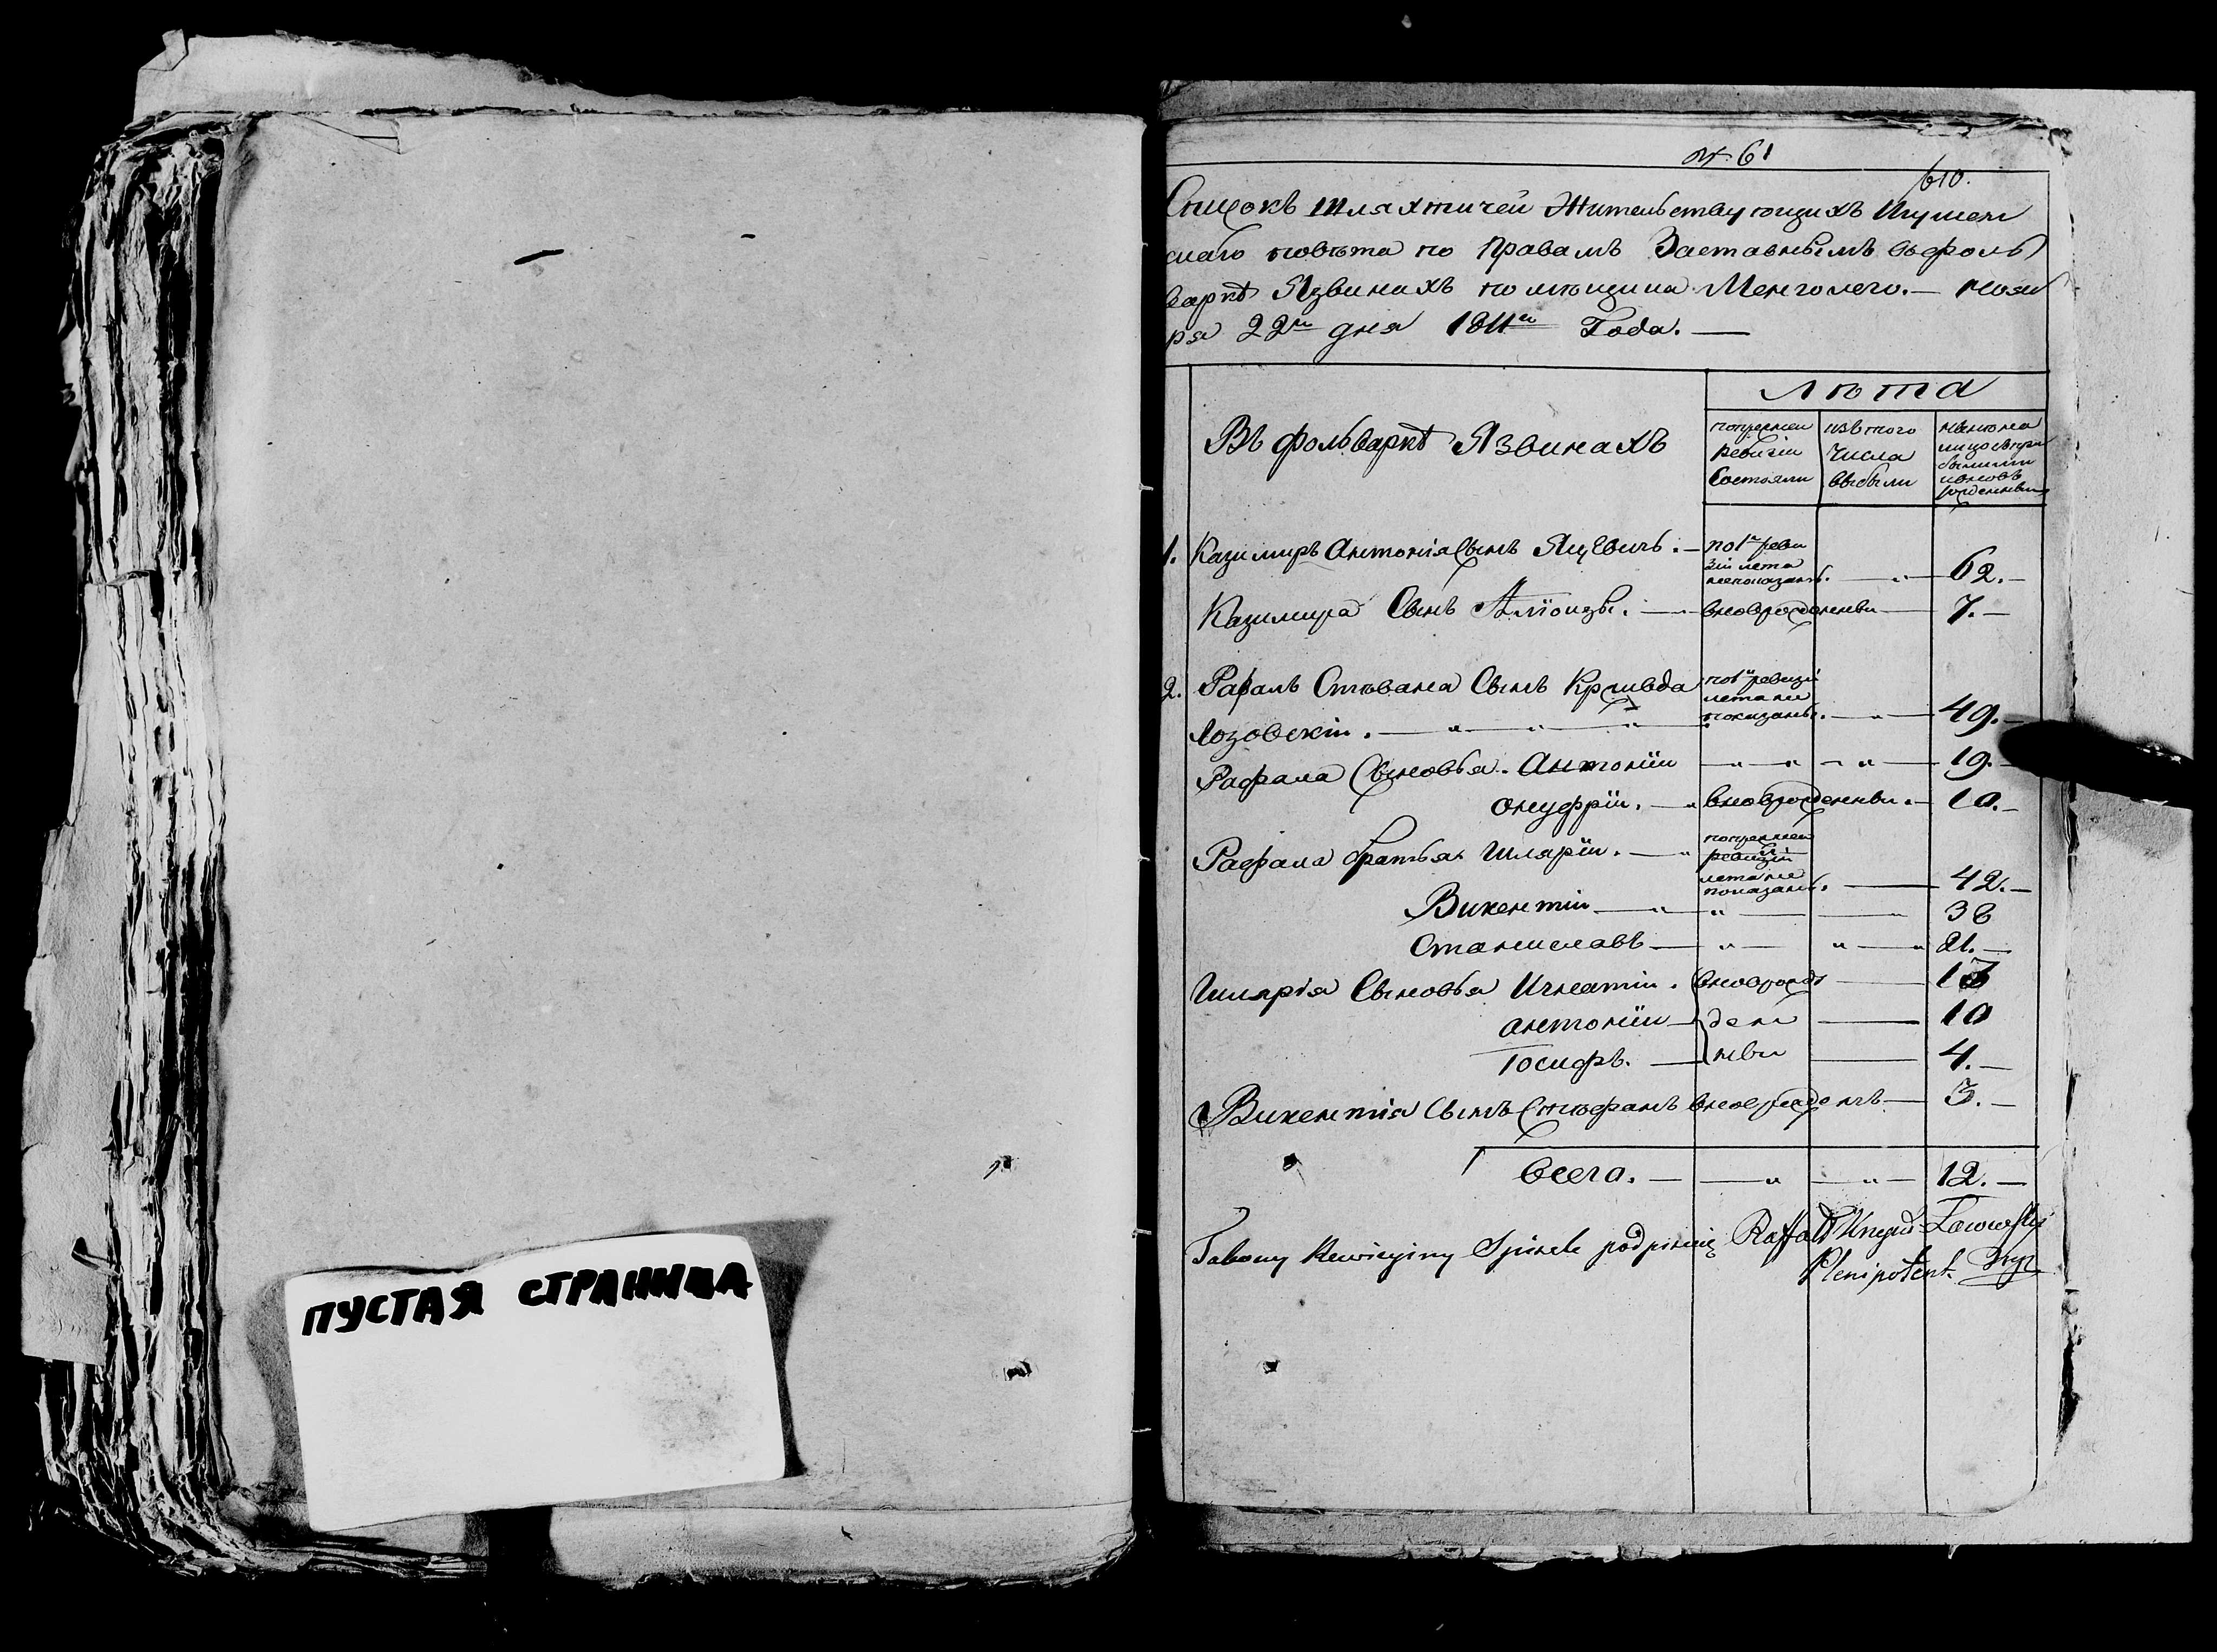 ПУСТАЯ СТРАНИЦА
№ 61
610.
Списокъ Шляхтичей Жительствующихъ Игумен
скаго повѣта по Правамъ Заставнымъ въ фоль
варкѣ Язвинахъ помѣщика — Нояб
ря 22го дня 1811го Года. —
Лѣта
Въ фольваркѣ Язвинахъ
попрежней ревизіи Состояли
изътого Числа выбыли
рожденными
1. Казимиръ Антонія Сынъ Яцевичъ. — по 1й ревизіи лета непоказанъ. — „ — 62. —
Казимира Сынъ — вновьрожденный — 7. —
2. Рафалъ Стѣвана Сынъ Кривда по 1й ревизіи лета не
Лозовскій. — „ — „ — „ — показаны. — „ — 49. —
Рафала Сыновья. Антоній — „ — „ — „ — 19. —
Онуфрій. — „ вновьрожденный. — 10. —
Рафала братья Иллярій. — „ попрежней ревизіи лета не показаны. — 42. —
Викентій — „ — „ — 36
Станиславъ — „ — „ — „ 21. —
Иллярія Сыновья Игнатій. вноврож — 13
Антоній — ден — 10
Іосифъ. — ный — 4. —
Викентія Сынъ Стефанъ вноврожденъ — 3. —
Всего. — „ — „ — 12. —
Takowy Rewizyiny Spisek podpisuię Raffał Krzywd Łozowski
Plenipotent.